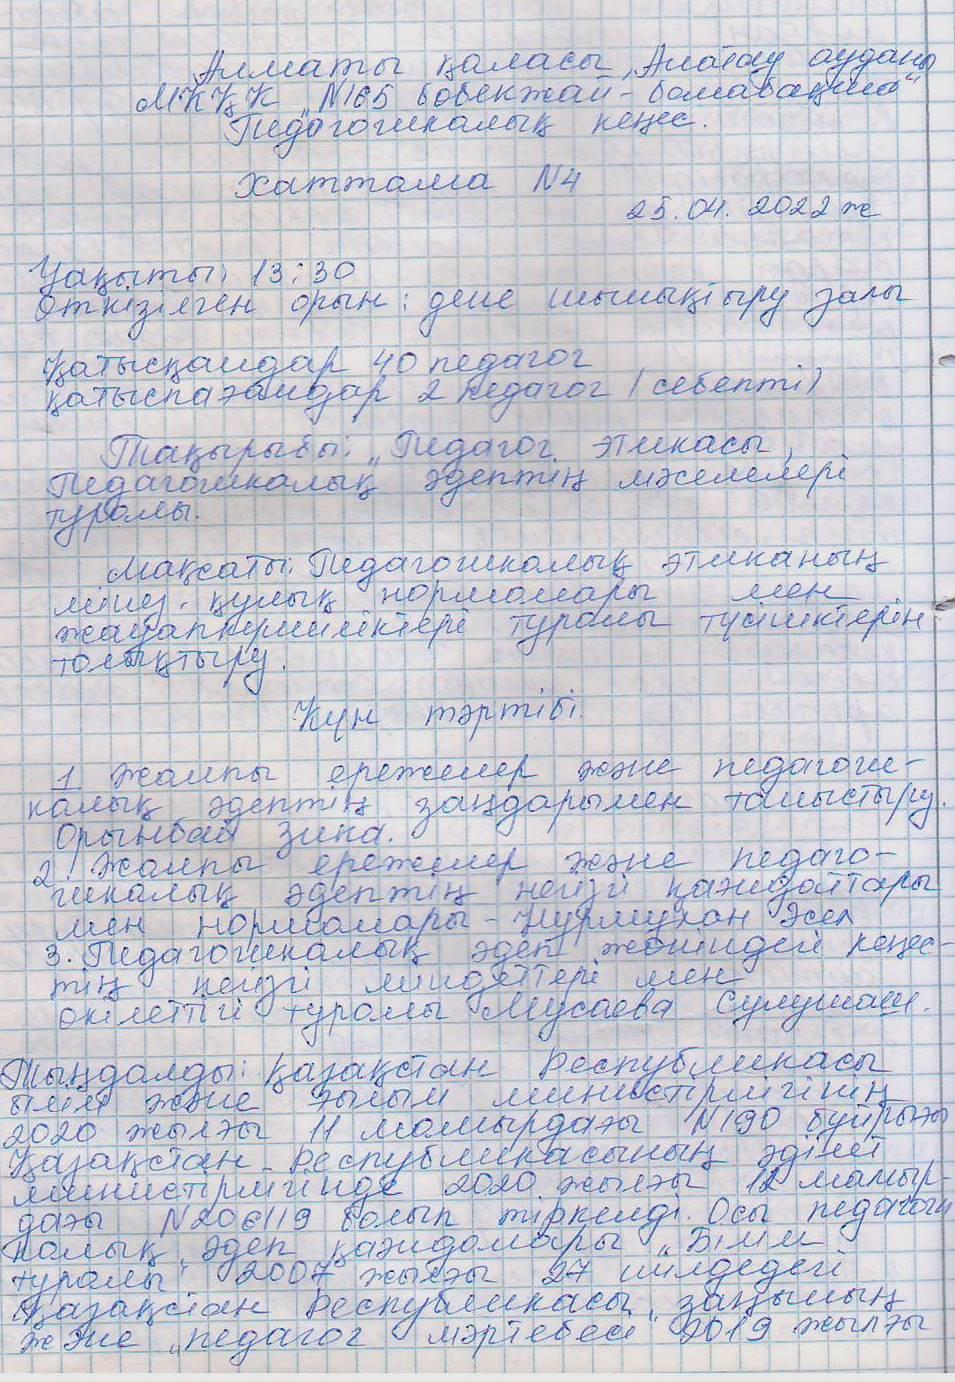 Алматы қаласы, Алатау ауданы
МКҚК „N165 бөбекжай-балабақша"
Педагогикалық кеңес.
Хаттама N4
25.04.2022 ж
Уақыты: 13:30
Өткізілген орын: дене шынықтыру залы
Қатысқандар 40 педагог
қатыспағандар 2 педагог (себепті)
Тақырыбы: „Педагог этикасы,
Педагогикалық әдептің мәселелері
туралы.
Мақсаты: Педагогикалық этиканың
мінез-құлық нормалары мен
жауапкершіліктері туралы түсініктерін
толықтыру.
Күн тәртібі.
1 Жалпы ережелер және педагоги-
калық әдептің заңдарымен таныстыру.
Орынбай Зика.
2. Жалпы ережелер және педаго-
гикалық әдептің негізгі қағидаттары
мен нормалары - Нурмухан Әсел
3. Педагогикалық әдеп жөніндегі кеңес-
тің негізгі міндеттері мен
өкілеттігі туралы Мусаева Сулушаш.
Тыңдалды: Қазақстан Республикасы
білім және ғылым министірлігінің
2020 жылғы 11 мамырдағы N190 бұйрығы
Қазақстан Республикасының әділет
министірлігінде 2020 жылғы 12 мамыр-
дағы болып тіркелді. Осы педагоги
калық әдеп қағидалары „Білім
туралы" 2007 жылғы 27 шілдедегі
Қазақстан Республикасы заңының
және „педагог мәртебесі" 2019 жылғы